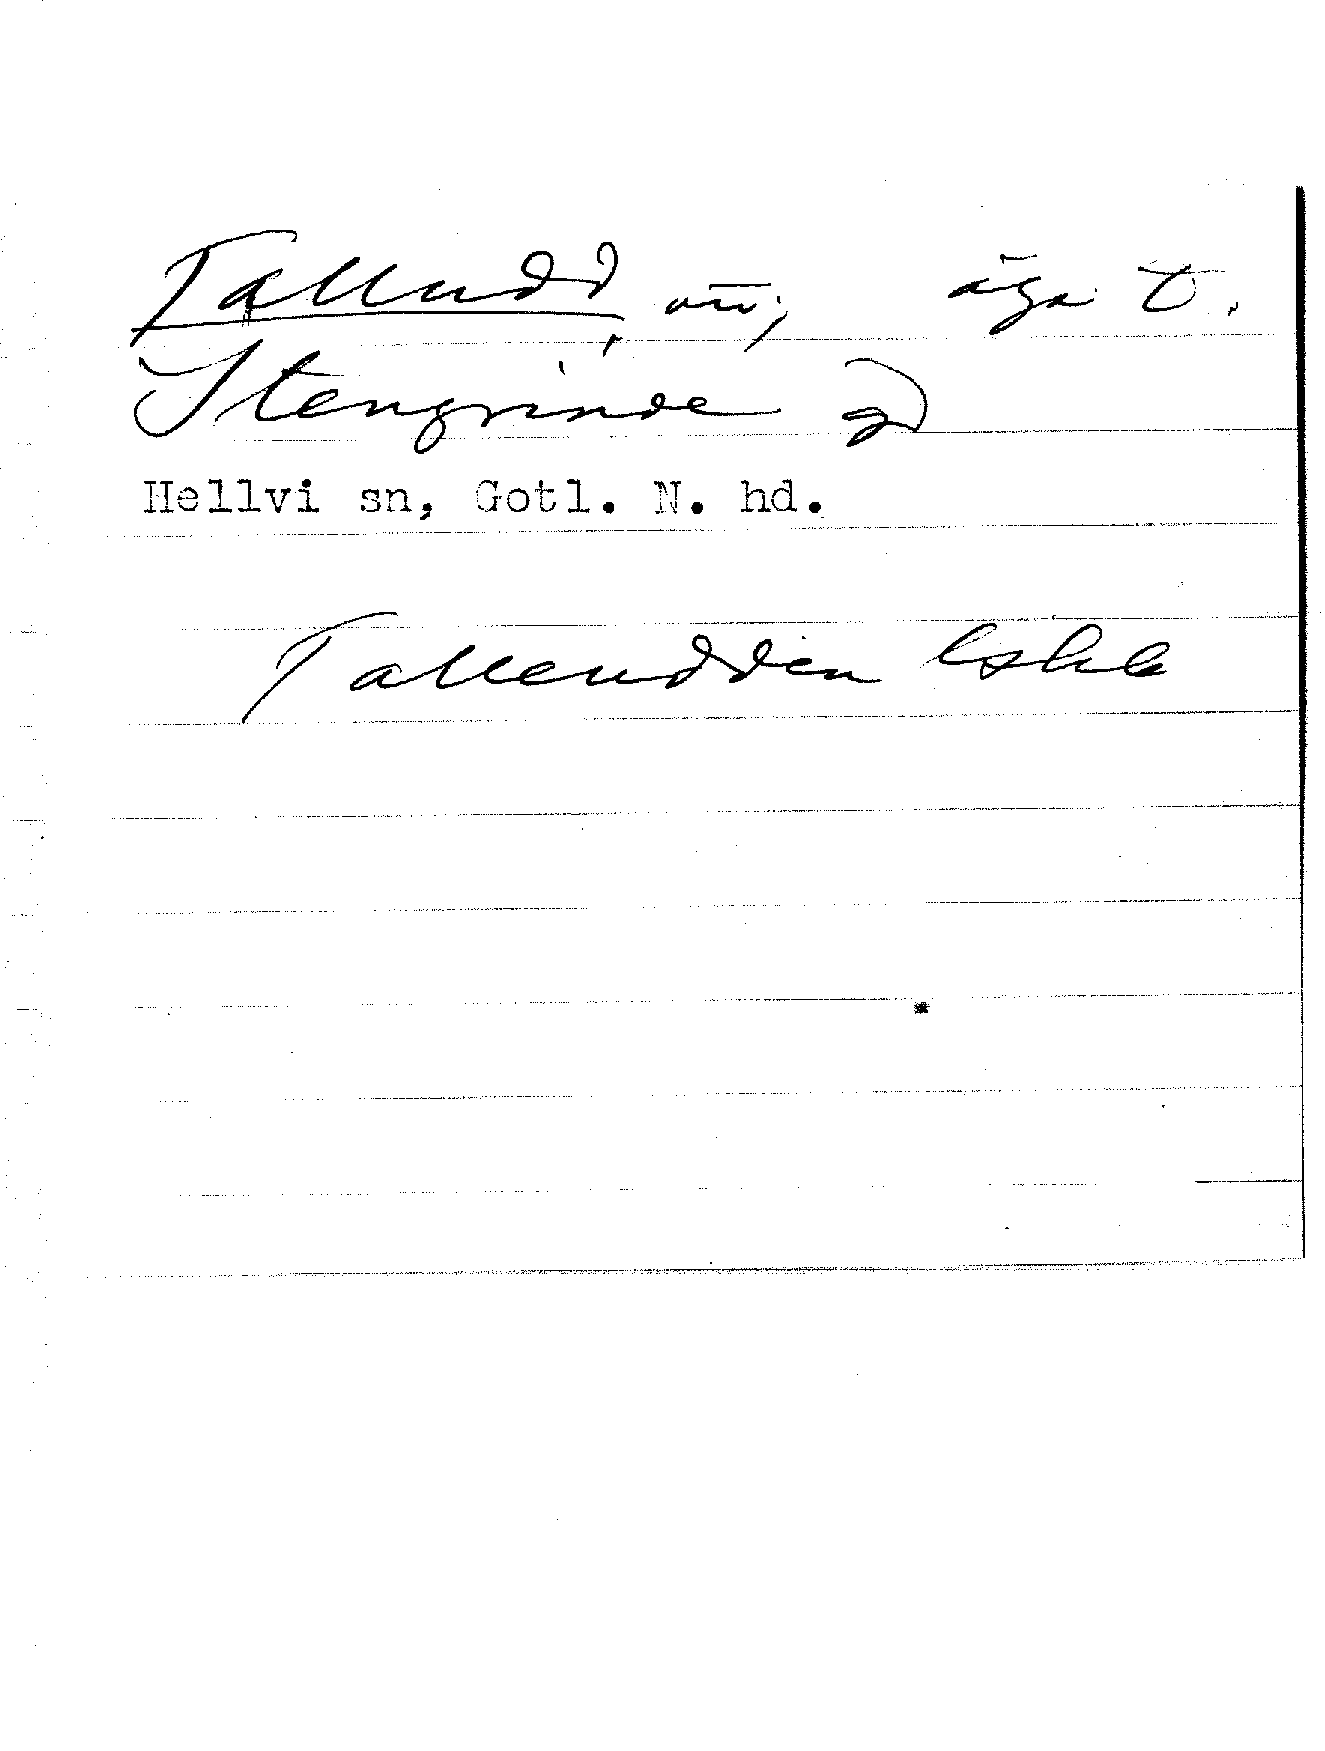 Talludd, äga t.
Stengrinde gd
Hellvi sn, Gotl. N. hd.
Talleudden